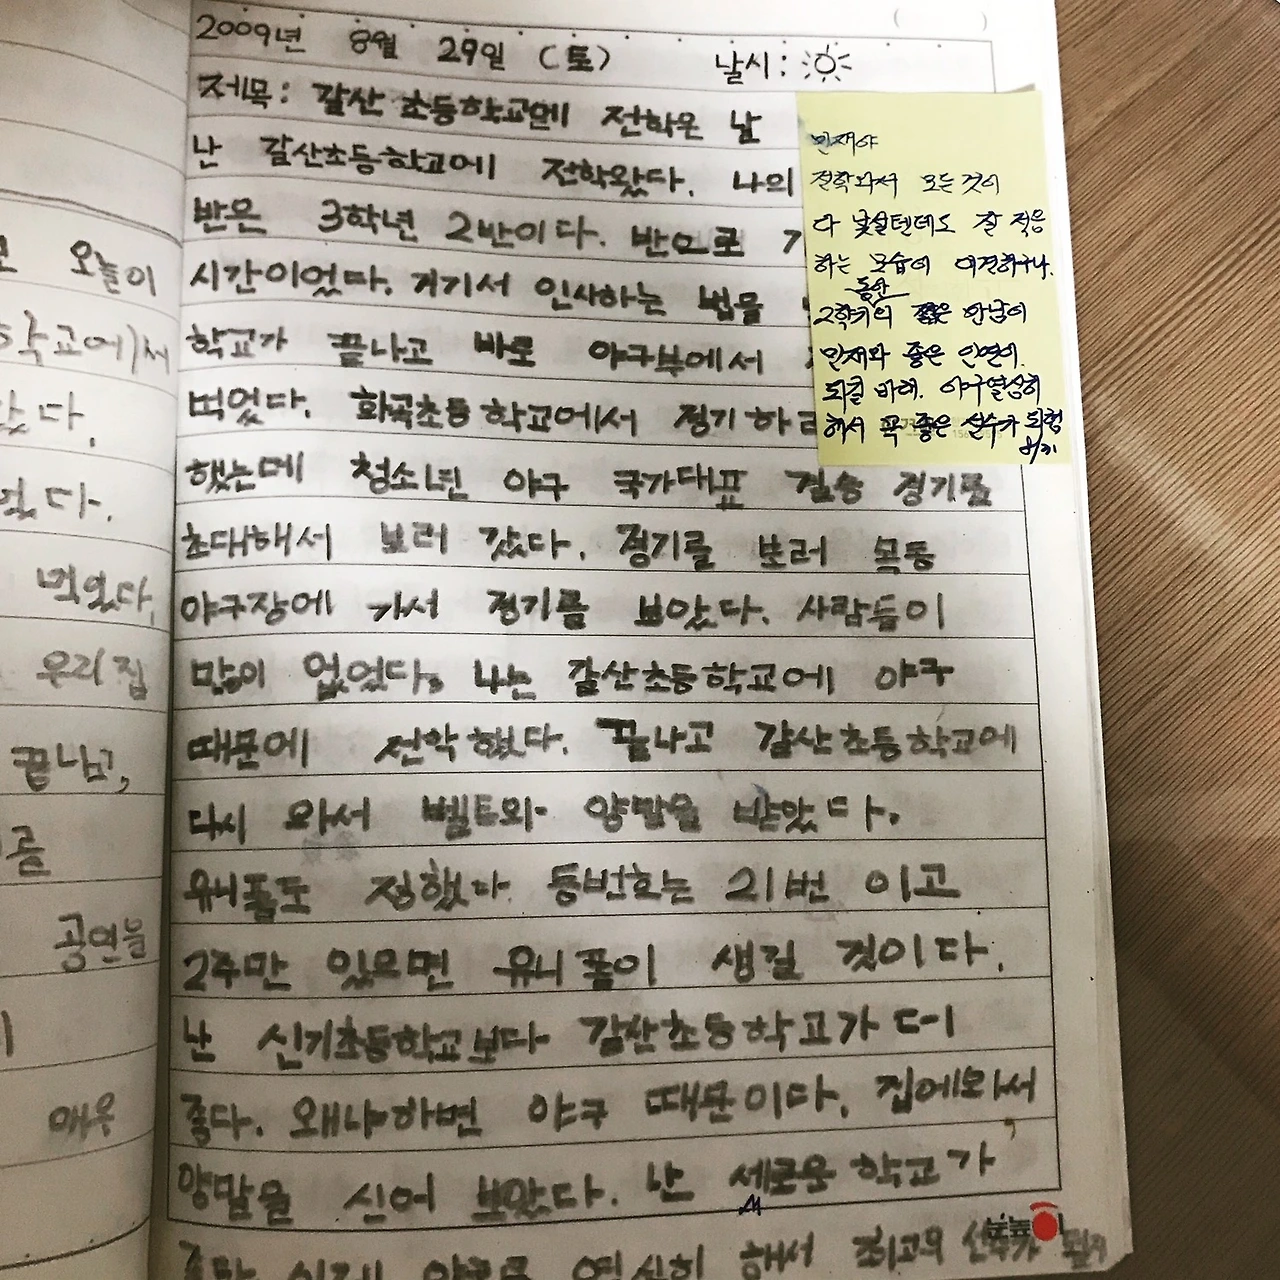 2009년 8월 29일 (토) 날시:
제목: 갈산 초등학교에 전학온 날
난 갈산초등학교에 전학왔다. 나의
반은 3학년 2반이다. 반으로
시간이었다. 거기서 인사하는 법을
학교가 끝나고 바로 야구부에서
먹었다. 화곡초등학교에서 경기하
했는데 청소년 야구 국가대표 결승 경기를
초대해서 보러 갔다. 경기를 보러 목동
야구장에 가서 경기를 보았다. 사람들이
많이 없었다. 나는 갈산초등학교에 야구
때문에 전학했다. 끝나고 갈산초등학교에
다시 와서 벨트와 양말을 받았다.
유니폼도 정했다. 등번호는 21번 이고
2주만 있으면 유니폼이 생길 것이다.
난 신기초등학교보다 갈산초등학교가 더
좋다. 왜냐하면 야구 때문이다. 집에와서
양말을 신어 보았다. 난 세로운 학교가
해서 최고의 선수가
눈높이
민재야
전학와서 모든 것이
다 낯설텐데도 잘 적응
하는 모습이 이견하구나.
2학기 동안의 짧은 만남이
민재와 좋은 인연이
되길 바래. 야구열심히
해서 꼭 좋은 선수가 되렴
8/31
오늘이
학교에서
았다.
었다.
먹었다.
우리집
끝나고,
를
공연을
매우